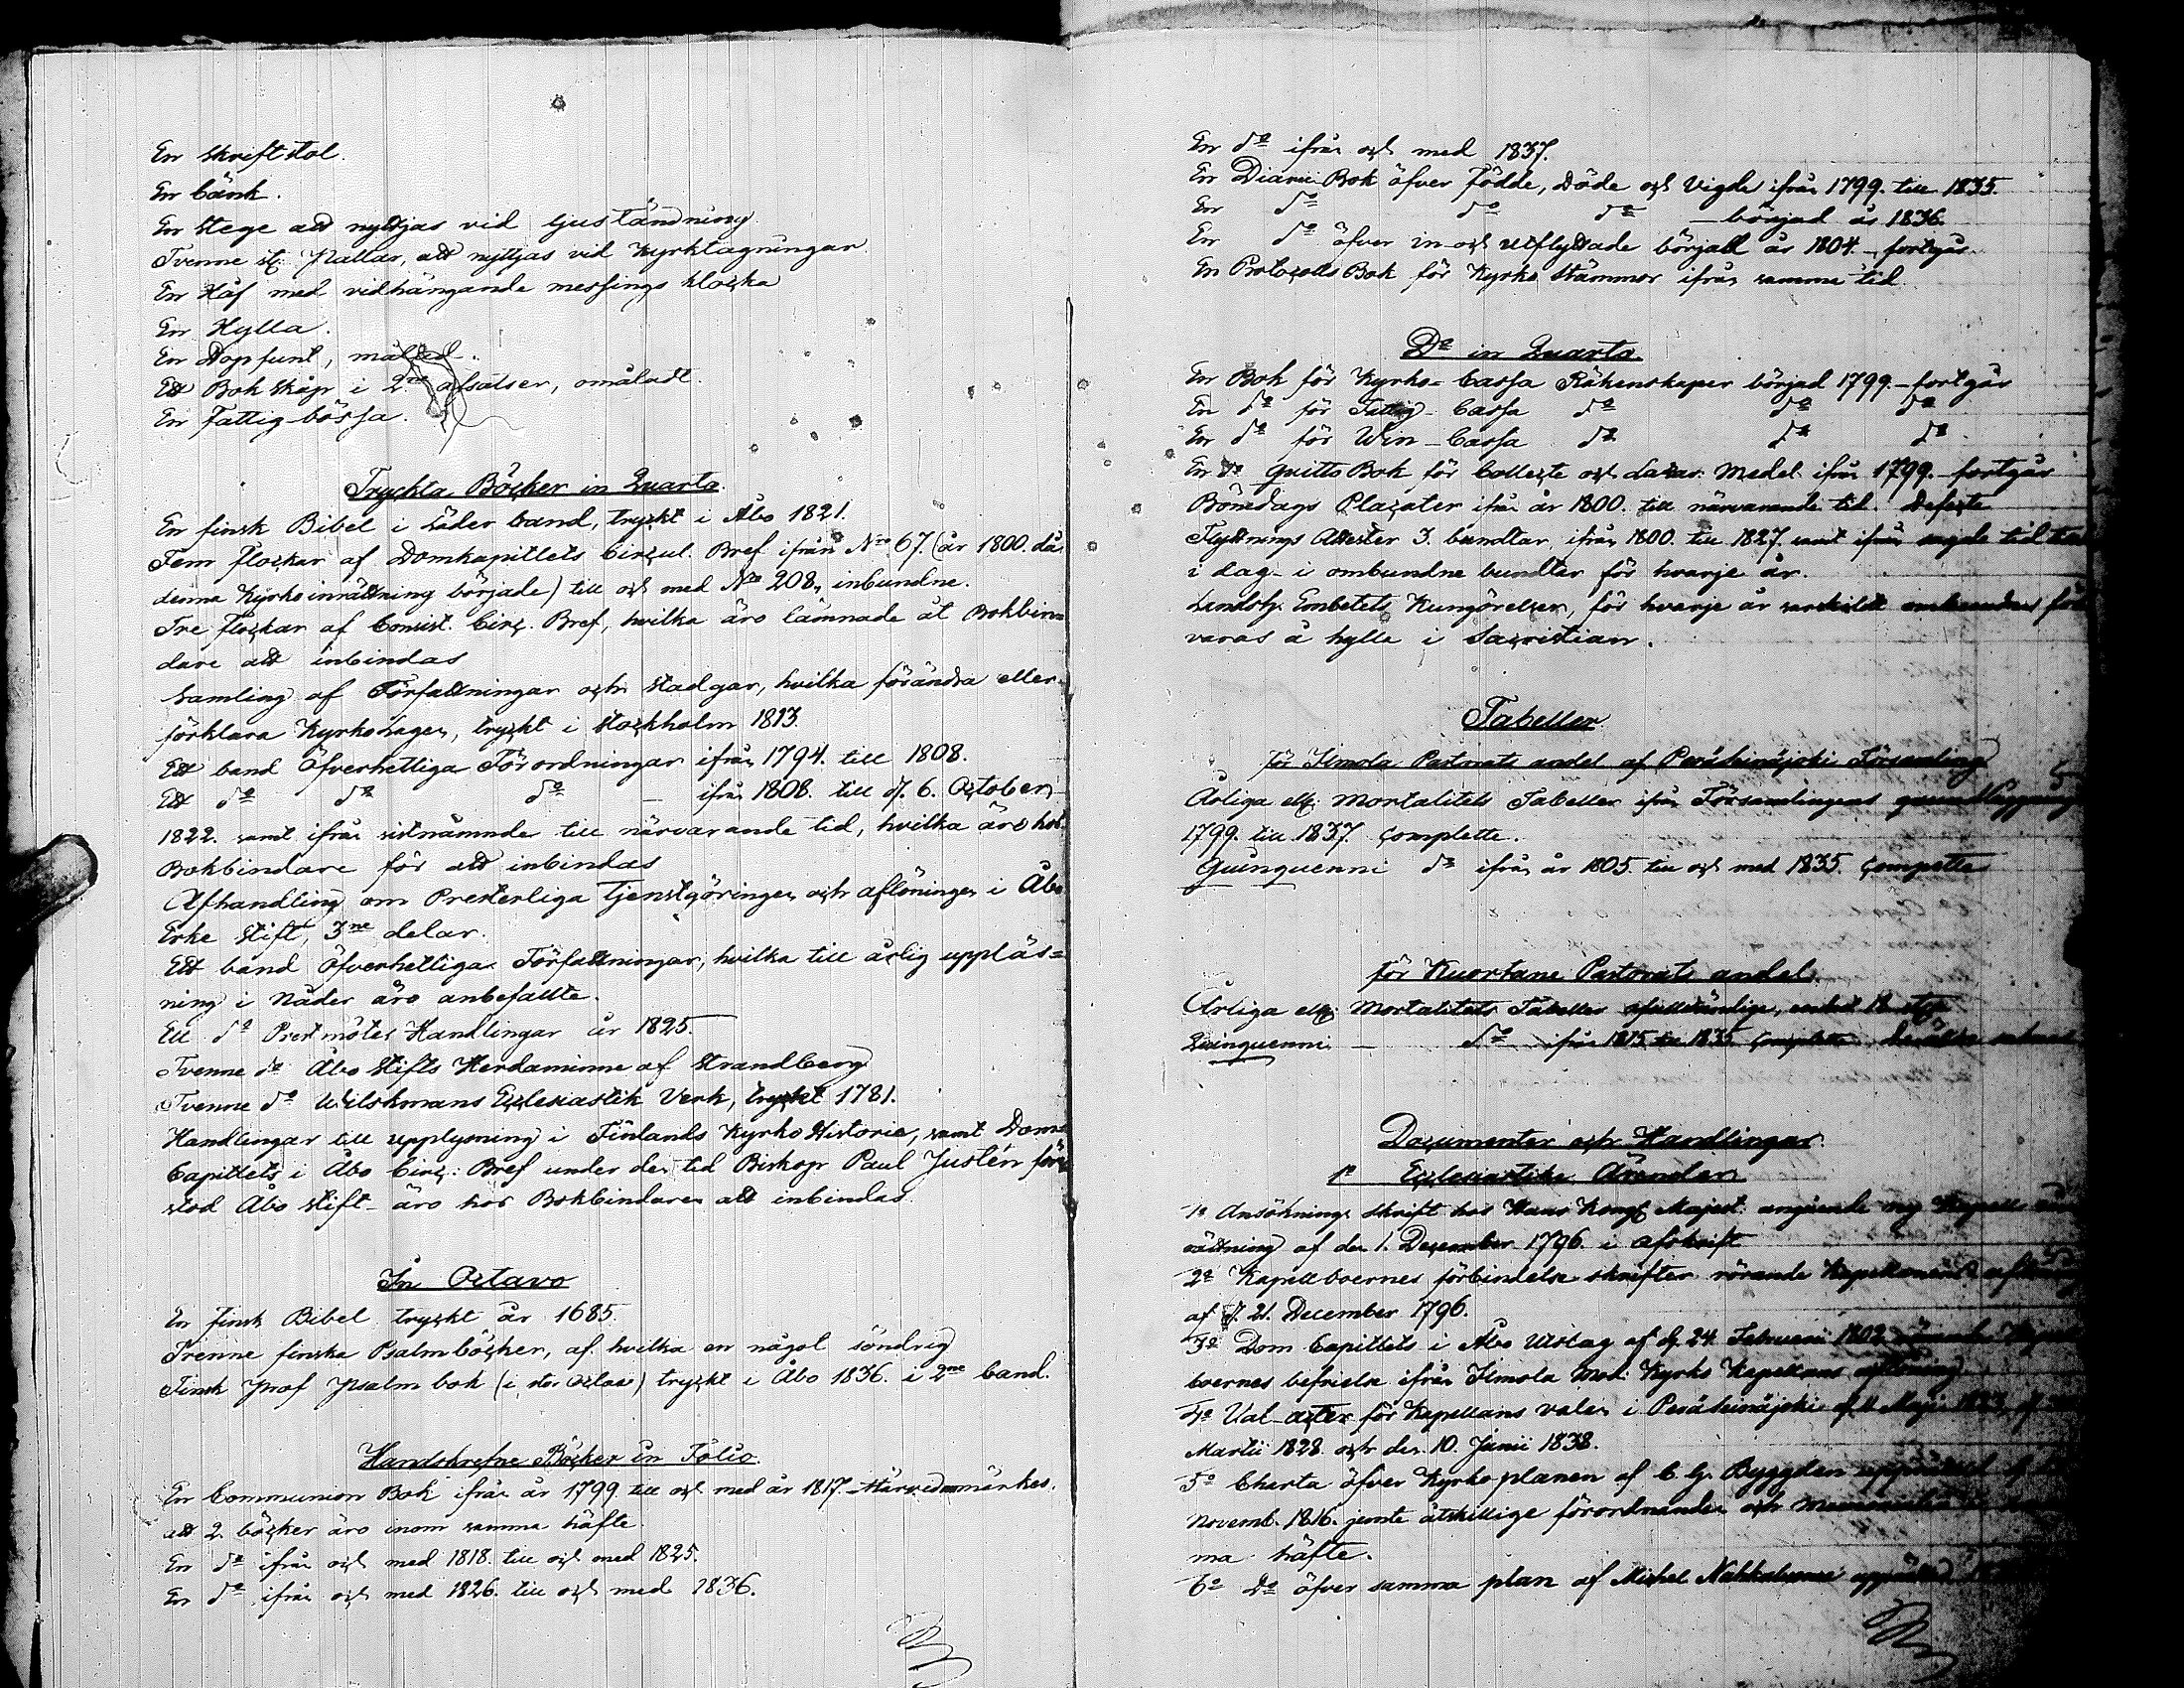 En skriftstol.
En bänk.
En stege att nyttjas vid ljuständning.
Tvenne st. Pallar, att nyttjas vid Kyrktagningar
En Håf med vidhängande messings klocka
En Hylla.
En Dopfunt, målad.
Ett Bokskåp i 2ne afsatser, omåladt.
En Fattig-bössa.
Tryckta Böcker in Quarto.
En finsk Bibel i Läder band, tryckt i Åbo 1821.
Fem flockar af Domkapitlets Circul. Bref ifrån Nro 67. (år 1800. då
denna Kyrkoinrättning började) till och med Nro 208, inbundne.
Tre flockar af Consist. Circ. Bref, hvilka äro lämnade åt Bokbin=
dare att inbindas
Samling af Författningar och stadgar, hvilka förändra eller
förklara KyrkoLagen, tryckt i Stockholm 1813.
Ett band Öfverhetliga Förordningar ifrån 1794. till 1808.
Ett do do do — ifrån 1808. till d. 6. October
1822. samt ifrån sistnämnde till närvarande tid, hvilka äro hos
Bokbindare för att inbindas
Afhandling om Presterliga Tjenstgöringen och aflöningen i Åbo
Erke Stift, 3ne delar.
Ett band Öfverhetliga Författningar, hvilka till årlig uppläs=
ning i Nåder äro anbefallte.
Ett do Prestmötes Handlingar år 1825.
Tvenne do Åbo Stifts Herdaminne af Strandberg
Tvenne do Wilskmans Ecclesiastik Verk, tryckt 1781.
Handlingar till upplysning i Finlands Kyrko Historie, samt Dom
Capitlets i Åbo Circ: Bref under den tid Biskop Paul Justén före
stod Åbo Stift - äro hos Bokbindaren att inbindas.
In Octavo
En finsk Bibel tryckt år 1685.
Trenne finska Psalmböcker, af hvilka en något söndrig
Finsk Prof Psalmbok (i stor Octav) tryckt i Åbo 1836. i 2ne band.
Handskrefne Böcker in Folio.
En Communion Bok ifrån år 1799 till och med år 1817. Härvid märkes,
att 2. böcker äro inom samma häfte.
En do ifrån och med 1818. till och med 1825.
En do ifrån och med 1826. till och med 1836.
En do ifrån och med 1837.
En Diarii Bok öfver Födde, Döde och Vigde ifrån 1799. till 1835.
En do do do — börjad år 1836.
En do öfver in- och utflyttade börjad år 1804. — fortgår.
En Protocolls Bok för Kyrko stämmor ifrån samma tid.
Do in Quarto.
En Bok för Kyrko-Cassa Räkenskaper börjad 1799. — fortgår
En do för Fattig-Cassa do do do
En do för Win-Cassa do do do
En do Quitto Bok för Collecte och Lazar. Medel ifrån 1799. fortgår
Bönedags Placater ifrån år 1800. till närvarande tid. Defecte
Flyttnings Attester 3. bundtar, ifrån 1800. till 1827. samt ifrån sagde tid
i dag - i ombundne bundtar för hvarje år.
Landsh. Embetets Kungörelser, för hvarje år särskildt ombundne för
varas å hylla i Sacristian.
Tabeller
för Ilmola Pastorats andel af Peräseinäjoki Församling
Årliga Mortalitets Tabeller ifrån Församlingens grundläggning
1799. till 1837. complette.
Quinquenni do ifrån år 1805. till och med 1835. compette
för Kuortane Pastorats andel.
Årliga Mortalitets Tabeller ofullständige, endast 18
Quinquenni — do ifrån 1815 till 1835 complette
Documenter och Handlingar.
1o Ecclesiastike Ärender
1o Ansöknings skrift hos Hans Kongl Majest. angående ny Kapells in
rättning af den 1. December 1796. i afskrift
2o Kapellboernes förbindelse skrifter rörande Kapellanens
af d. 21. December 1796.
3o Dom Capitlets i Åbo Utslag af d. 24. Februari 1802 rörande
boernes befrielse ifrån Ilmola Mod: Kyrko Kapellans aflöning
4o Val-acter för Kapellans valen i Peräseinäjoki
Martii 1828. och den 10. Junii 1838.
5o Charta öfver Kyrkoplanen af C. G. Byggdén upprättad
Novemb. 1816. jemte åtskillige förordnanden och
ma häfte.
6o Do öfver samma plan af Michel